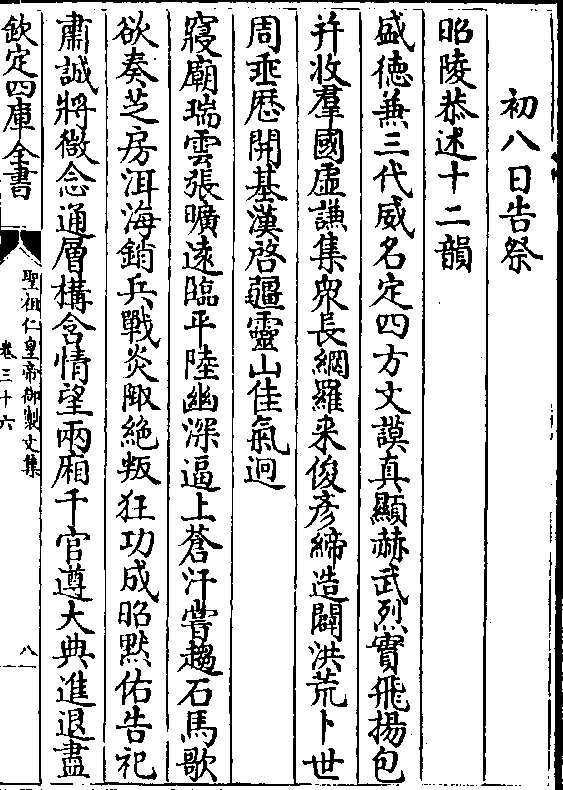 初八日告祭
昭陵恭述十二韻
盛德兼三代威名定四方文謨真顯赫武烈實飛揚包
并收羣國虛謙集衆長網羅来俊彦締造闢洪荒卜世
周垂歴開基漢啓疆靈山佳氣迥
寢廟瑞雲張曠遠臨平陸幽深逼上蒼汗嘗趨石馬歌
欲奏芝房洱海銷兵戰炎陬絶叛狂功成昭黙佑告祀
肅誠將微念通層構含情望兩廂千官遵大典進退盡
欽定四庫全書
聖祖仁皇帝御製文集
卷三十六
八